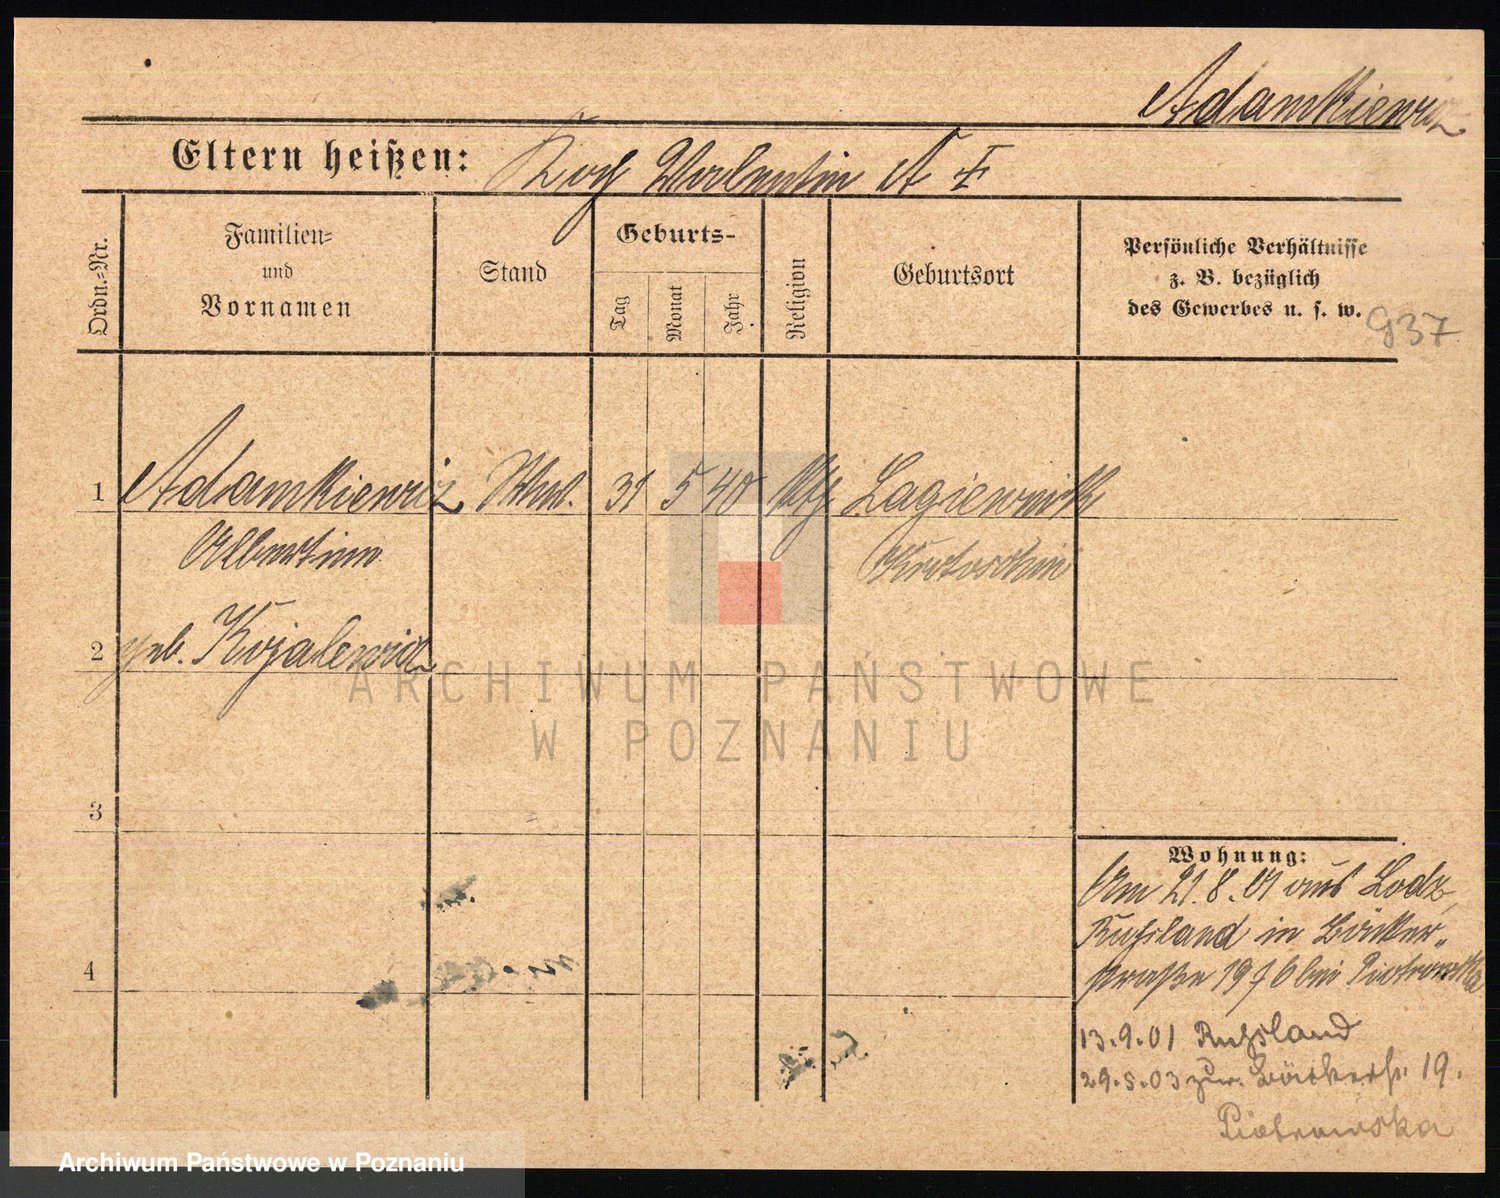 Adamkiewicz
Eltern heißen:
Valentin A
Ordn.-Nr.
Familien-
und
Vornamen
Stand
Geburts-
Tag
Monat
Jahr
Religion
Geburtsort
Persönliche Verhältnisse
z. B. bezüglich
des Gewerbes u. s. w.
937
1 Adamkiewicz Wwe. 31 5 40 kth Lagiewnik
Albertine Krotoschin
2 geb. Kojalewicz
3
4
Wohnung:
Am 21.8.01 aus Lodz,
Rußland in Bäcker-
straße 19 bei Piotrowska
13.9.01 Russland
29.5.03 zur. Bäckerstr. 19.
Piotrowska
ARCHIWUM PAŃSTWOWE
W POZNANIU
Archiwum Państwowe w Poznaniu